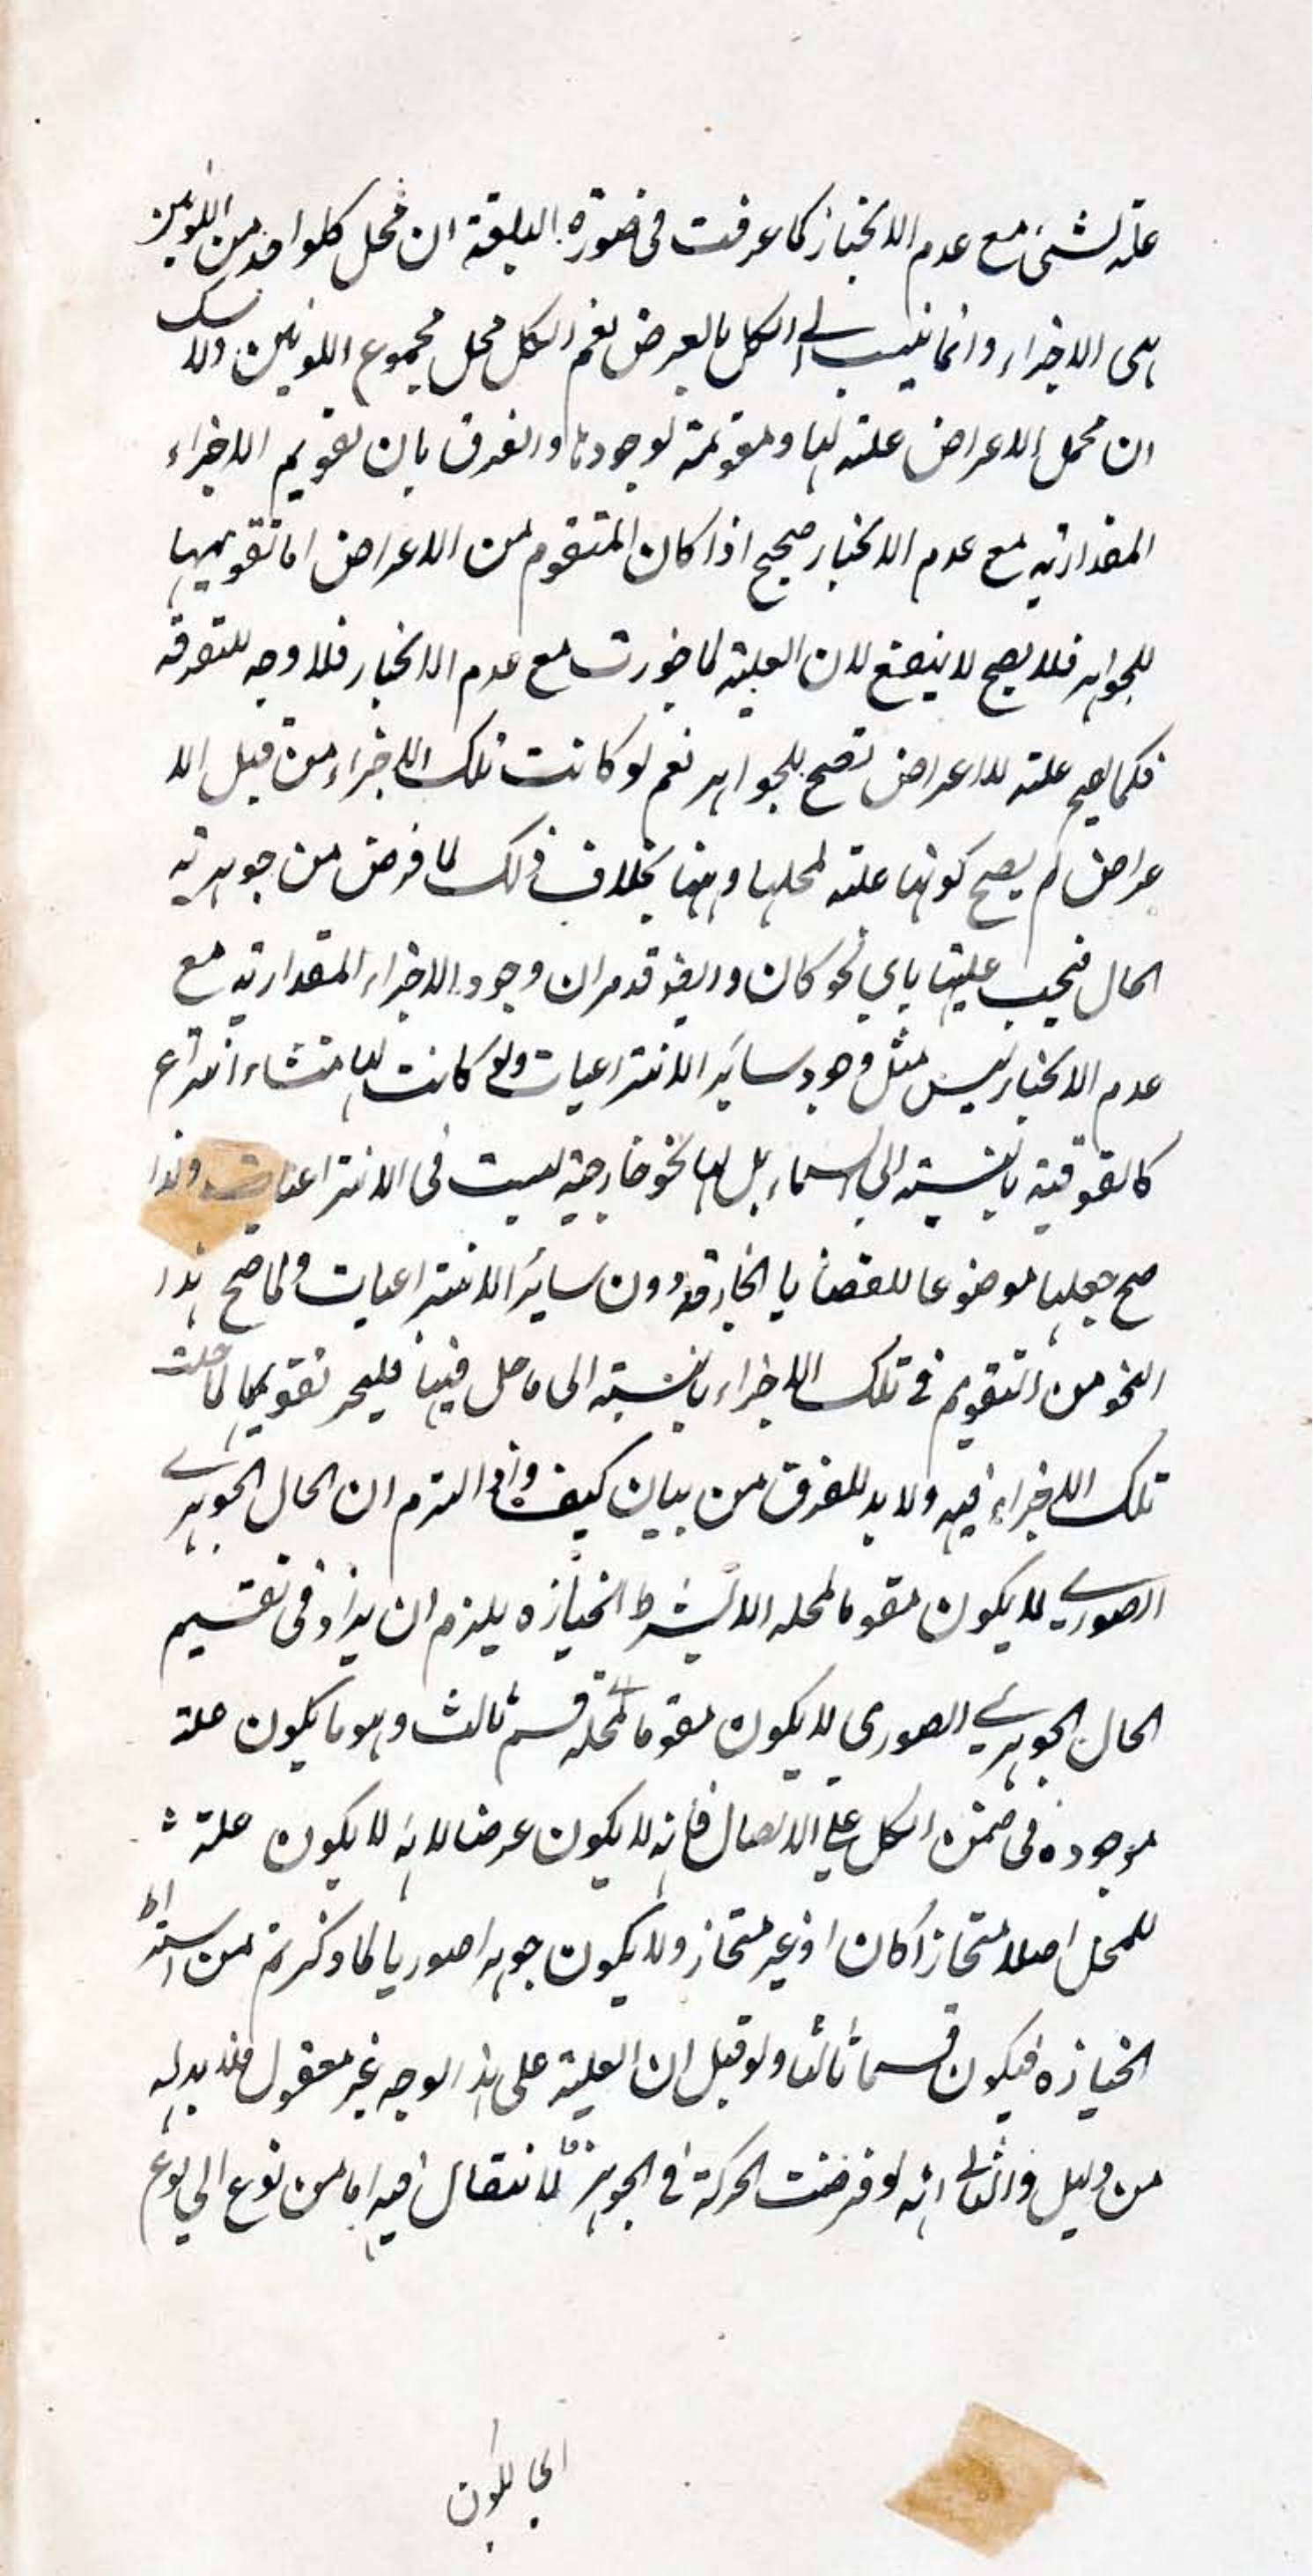 علة لشئ مع عدم الانحياز كما عرفت فى صورة البلقة ان محل كلواحد من اللونين
هى الاجزاء وانما ينسب الى الكل بالعرض نعم الكل محل مجموع اللونين ولا شك
ان محل الاعراض علة لها ومقومة لوجودها والفرق بان تقويم الاجزاء
المقدارية مع عدم الانحياز صحيح اذا كان المتقوم من الاعراض اما تقويمها
للجواهر فلا يصح لا ينفع لان العلية لما جوزت مع عدم الانحياز فلا وجه للتفرقة
فكما يصح علة للاعراض تصح للجواهر نعم لو كانت تلك الاجزاء من قبيل الا
عراض لم يصح كونها علة لمحلها وههنا بخلاف ذلك لما فرض من جوهرية
الحال فيجب عليتها باي نحو كان وايضا قد مر ان وجود الاجزاء المقدارية مع
عدم الانحياز ليس مثل وجود سائر الانتزاعيات ولو كانت لها منشاء انتزاع
كالفوقية بالنسبة الى السماء بل لها نحو خارجية ليست فى الانتزاعيات ولذا
صح جعلها موضوعا للقضايا الخارجية دون سائر الانتزاعيات ولما صح هذا
النحو من التقويم فى تلك الاجزاء بالنسبة الى ما حل فيها فليجز تقويمها لما حلت
تلك الاجزاء فيه ولا بد للفرق من بيان كيف واذا التزم ان الحال الجوهرى
الصورى لا يكون مقوما لمحله الا بشرط انحيازه يلزم ان يزاد فى تقسيم
الحال الجوهرى الصورى لا يكون مقوما لمحله قسم ثالث وهو ما يكون علة
موجودة فى ضمن الكل على الاتصال فانه لا يكون عرضا لانه لا يكون علة
للمحل اصلا متحازا كان او غير متحاز ولا يكون جوهرا صوريا لما ذكرتم من اشتراط
انحيازه فيكون قسما ثالثا ولو قيل ان العلية على هذا الوجه غير معقول فلا بد له
من دليل والثانى انه لو فرضت الحركة فى الجوهر فالانتقال فيه اما من نوع الى نوع